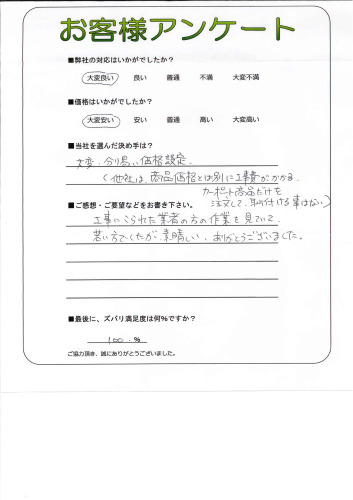 お客様アンケート
■弊社の対応はいかがでしたか?
大変良い 良い 普通 不満 大変不満
■価格はいかがでしたか?
大変安い 安い 普通 高い 大変高い
■当社を選んだ決め手は?
大変、分り易い価格設定。
(他社は、商品価格とは別に工事費がかかる。
カーポート商品だけを
注文して、取付ける事はない)
■ご感想・ご要望などをお書き下さい。
工事にこられた業者の方の作業を見ていて、
若い方でしたが、素晴しい。ありがとうございました。
■最後に、ズバリ満足度は何%ですか?
100 %
ご協力頂き、誠にありがとうございました。